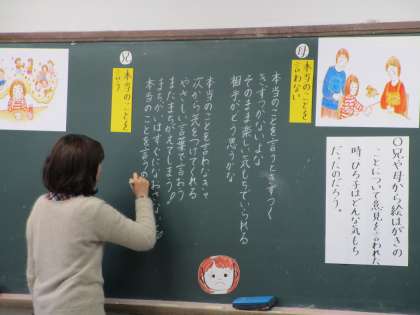 母
本当のことを
言わない
本当のことを言うときずつく
きずつかないような
そのまま楽しい気もちでいられる
相手がどう思うかな
兄
本当のことを
言う
本当のことを言わなきゃ
次から気をつけてくれる
やさしい言葉で言おう
またまちがえてしまう
まちがいはすぐになおさないと
本当のことを言うの
〇兄や母から絵はがきの
ことについて意見を言われた
時ひろ子はどんな気もち
だったのだろう。